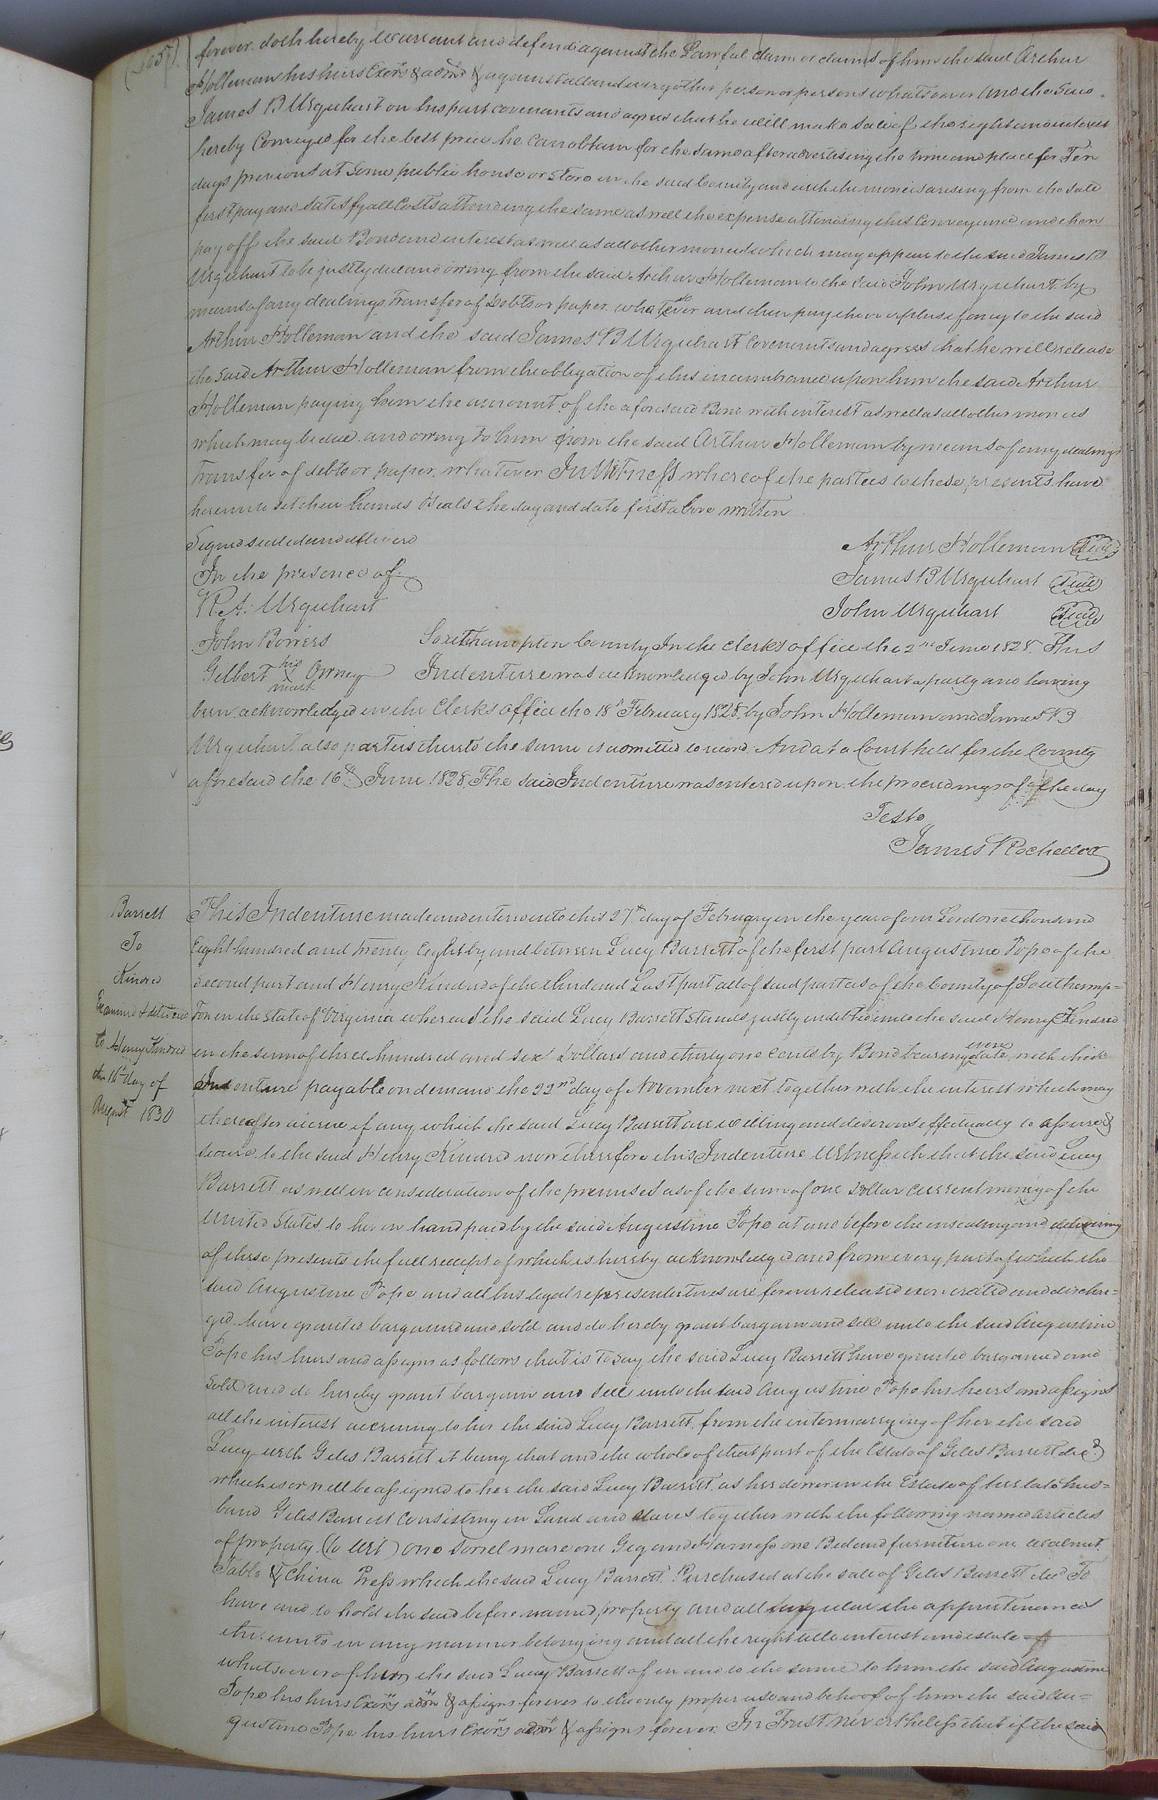 forever doth hereby warrant and defend against the Lawful claim or claims of him the said Arthur
Holleman his heirs Exors & admrs & against all and every other person or persons whatsoever And the said
James B Urquhart on his part covenants and agrees that he will make sale of the right and interest
hereby Conveyed for the best price he can obtain for the same after advertising the time and place for Ten
days previous at Some public house or store in the said County and with the monies arising from the sale
first pay and satisfy all Costs attending the same as well the expense attending this Conveyance and then
pay off the said Bond and interest as well as all other monies which may appear to the said James B
Urquhart to be justly due and owing from the said Arthur Holleman to the said John Urquhart by
means of any dealings Transfer of Debts or paper whatever and then pay the overplus if any to the said
Arthur Holleman and the said James B Urquhart Covenants and agrees that he will release
the said Arthur Holleman from the obligation of this incumbrance upon him the said Arthur
Holleman paying him the amount of the aforesaid Bond with interest as well as all other monies
which may be due and owing to him from the said Arthur Holleman by means of any dealings
Transfer of debts or paper whatever In Witness whereof the parties to these presents have
hereunto set their hands & seals the day and date first above written
Signed sealed and delivered
In the presence of
R. A. Urquhart
John Bowers
Gilbert his X mark Orney
Arthur Holleman Seal
James B Urquhart Seal
John Urquhart Seal
Southampton County In the Clerks office the 2nd June 1828 This
Indenture was acknowledged by John Urquhart a party and having
been acknowledged in the Clerks office the 18th February 1828 by John Holleman and James B
Urquhart also parties thereto the same is admitted to record. And at a Court held for the County
aforesaid the 16th June 1828. The said Indenture was entered upon the proceedings of the day
Teste
James Rochelle
Barrett
To
Kindred
Examined & delivered
to Henry Kindred
the 16th day of
August 1830
This Indenture made and entered into this 27th day of February in the year of our Lord one thousand
Eight hundred and twenty Eight by and between Lucy Barrett of the first part Augustine Pope of the
second part and Henry Kindred of the third and Last part all of said parties of the County of Southamp=
ton in the State of Virginia whereas the said Lucy Barrett stands justly indebted unto the said Henry Kindred
in the sum of three hundred and six Dollars and thirty one Cents by Bond bearing even date with this
Indenture payable on demand the 22nd day of November next together with the interest which may
thereafter accrue if any which the said Lucy Barrett are willing and desirous effectually to assure &
secure to the said Henry Kindred now therefore this Indenture Witnesseth that the said Lucy
Barrett as well in consideration of the premises as of the sum of one Dollar current money of the
United States to her in hand paid by the said Augustine Pope at and before the ensealing and delivering
of these presents the full receipt of which is hereby acknowledged and from every part of which the
said Augustine Pope and all his legal representatives are forever released exonerated and dischar=
ged have granted bargained and sold and do hereby grant bargain and sell unto the said Augustine
Pope his heirs and assigns as follows that is to say the said Lucy Barrett have granted bargained and
Sold and do hereby grant bargain and sell unto the said Augustine Pope his heirs and assigns
all the interest accruing to her the said Lucy Barrett from the intermarrying of her the said
Lucy with Giles Barrett it being that and the whole of that part of the Estate of Giles Barrett decd
which is or will be assigned to her the said Lucy Barrett as her dower in the Estate of her late hus=
band Giles Barrett consisting in Land and slaves together with the following named articles
of property (to wit) one sorrel mare one Gig and Harness one Bed and furniture one walnut
Table & China Press which the said Lucy Barrett Purchased at the sale of Giles Barrett decd To
have and to hold the said before named property and all singular the appurtenances
thereunto in any manner belonging and all the right title interest and estate
whatsoever of her the said Lucy Barrett of in and to the same to him the said Augustine
Pope his heirs Exors admr & assigns forever to the only proper use and behoof of him the said Au=
gustine Pope his heirs Exors admr & assigns forever. In Trust nevertheless that if the said